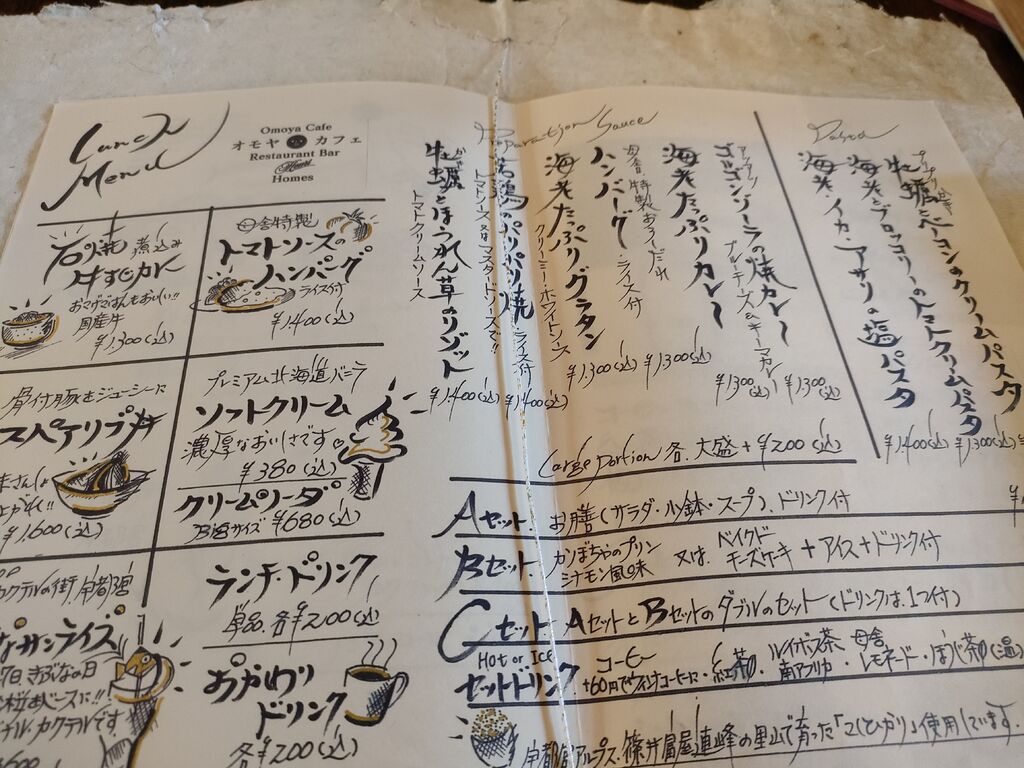 Lunch
Menu
Omoya Cafe
オモヤ カフェ
Restaurant Bar
Homes
石焼 煮込み
牛すじカレー
国産牛
¥1,300(込)
母舎特製
トマトソースの
ハンバーグ
ライス付
¥1,400(込)
骨付豚をジューシーに
スペアリブ丼
¥1,600(込)
プレミアム北海道バニラ
ソフトクリーム
濃厚なおいしさです
¥380(込)
クリームソーダ
¥680(込)
カクテルの街、宇都宮
サンライズ
カクテルです
ランチ・ドリンク
単品 各¥200(込)
おかわり
ドリンク
各¥200(込)
Preparation Sauce
ゴルゴンゾーラの焼カレー
ブルーチーズ&キーマカレー
¥1,300(込)
海老たっぷりカレー
¥1,300(込)
ハンバーグ・ライス付
母舎特製おろしだれ
¥1,300(込)
海老たっぷりグラタン
クリーミーホワイトソース
¥1,300(込)
若鶏のパリパリ焼・ライス付
トマトソース又はマスタードソースで!!
¥1,400(込)
牡蠣とほうれん草のリゾット
トマトクリームソース
¥1,400(込)
Pasta
プリプリかき
牡蠣とベーコンのクリームパスタ
海老とブロッコリーのトマトクリームパスタ
¥1,300(込)
海老・イカ・アサリの塩パスタ
¥1,400(込)
Large Portion 各 大盛+¥200(込)
Aセット お膳(サラダ・小鉢・スープ)、ドリンク付
Bセット かぼちゃのプリン シナモン風味 又は ベイクドチーズケーキ+アイス+ドリンク付
Cセット AセットとBセットのダブルのセット(ドリンクは1つ付)
Hot or Ice
セットドリンク コーヒー +60円でウィンナーコーヒーに・紅茶・ルイボス茶 南アフリカ・母舎レモネード・ほうじ茶(温)
宇都宮アルプス、篠井富屋連峰の里山で育った「こしひかり」使用しています。